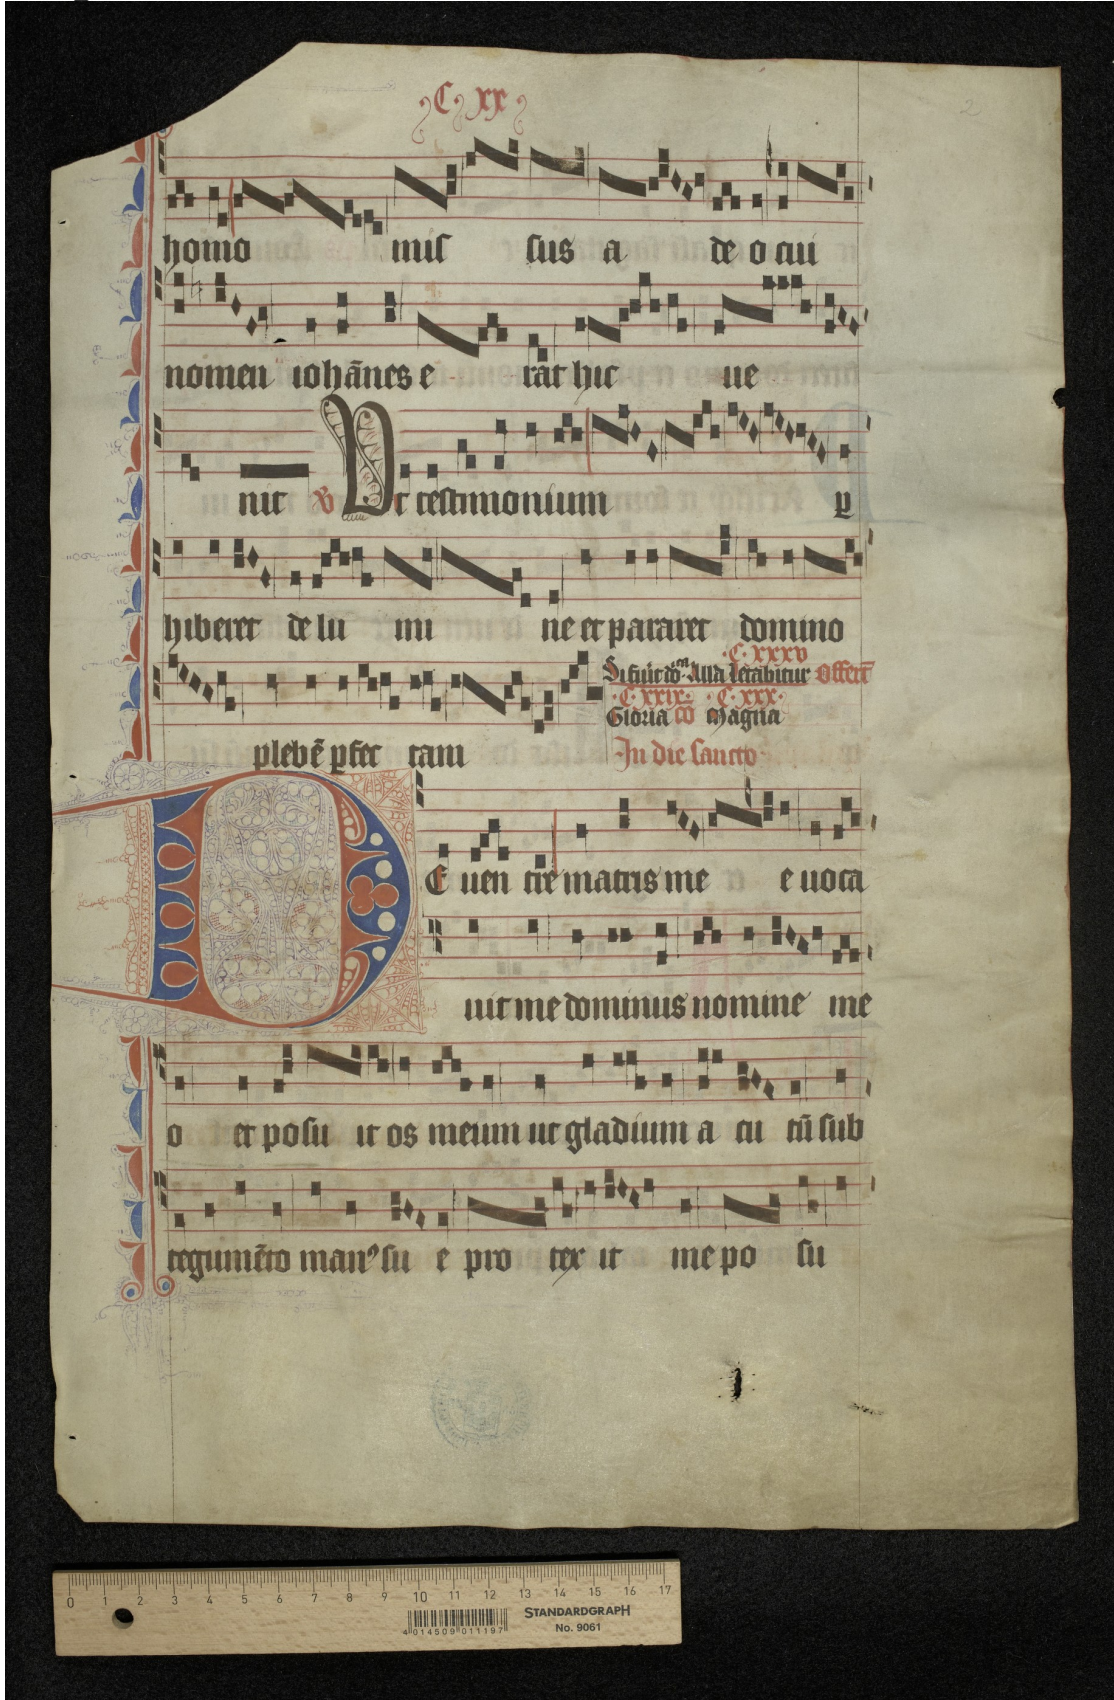 C xx
2
homo mis sus a de o cui
nomen iohānes e rat hic ue
nit V Ut testimonium p
hiberet de lu mi ne et pararet domino
C xxxv
Si fuit dō Alla Letabitur Offert
C xxix C xxx
Gloria co Magna
plebē pfec tam
In die sancto
DE uen tre matris me e uoca
uit me dominus nomine me
o et posu it os meum ut gladium a cu tū sub
tegumēto manꝰ su e pro tex it me po su
0 1 2 3 4 5 6 7 8 9 10 11 12 13 14 15 16 17
STANDARDGRAPH
No. 9061
4 014509 011197